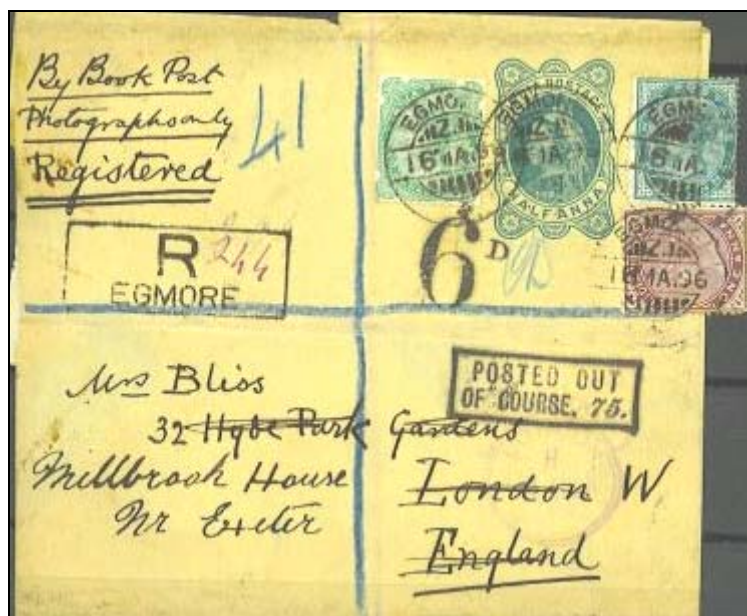 By Book Post
Photographs only
Registered
41
R 244
EGMORE
EGMO
16 MA.9
EGMOR
POSTAGE
HALF ANNA
EGM
16 MA.
EGMO
16 MA.96
6D
POSTED OUT
OF COURSE. 75.
Mrs Bliss
32 Hyde Park Gardens
Millbrook House
Nr Exeter
London W
England